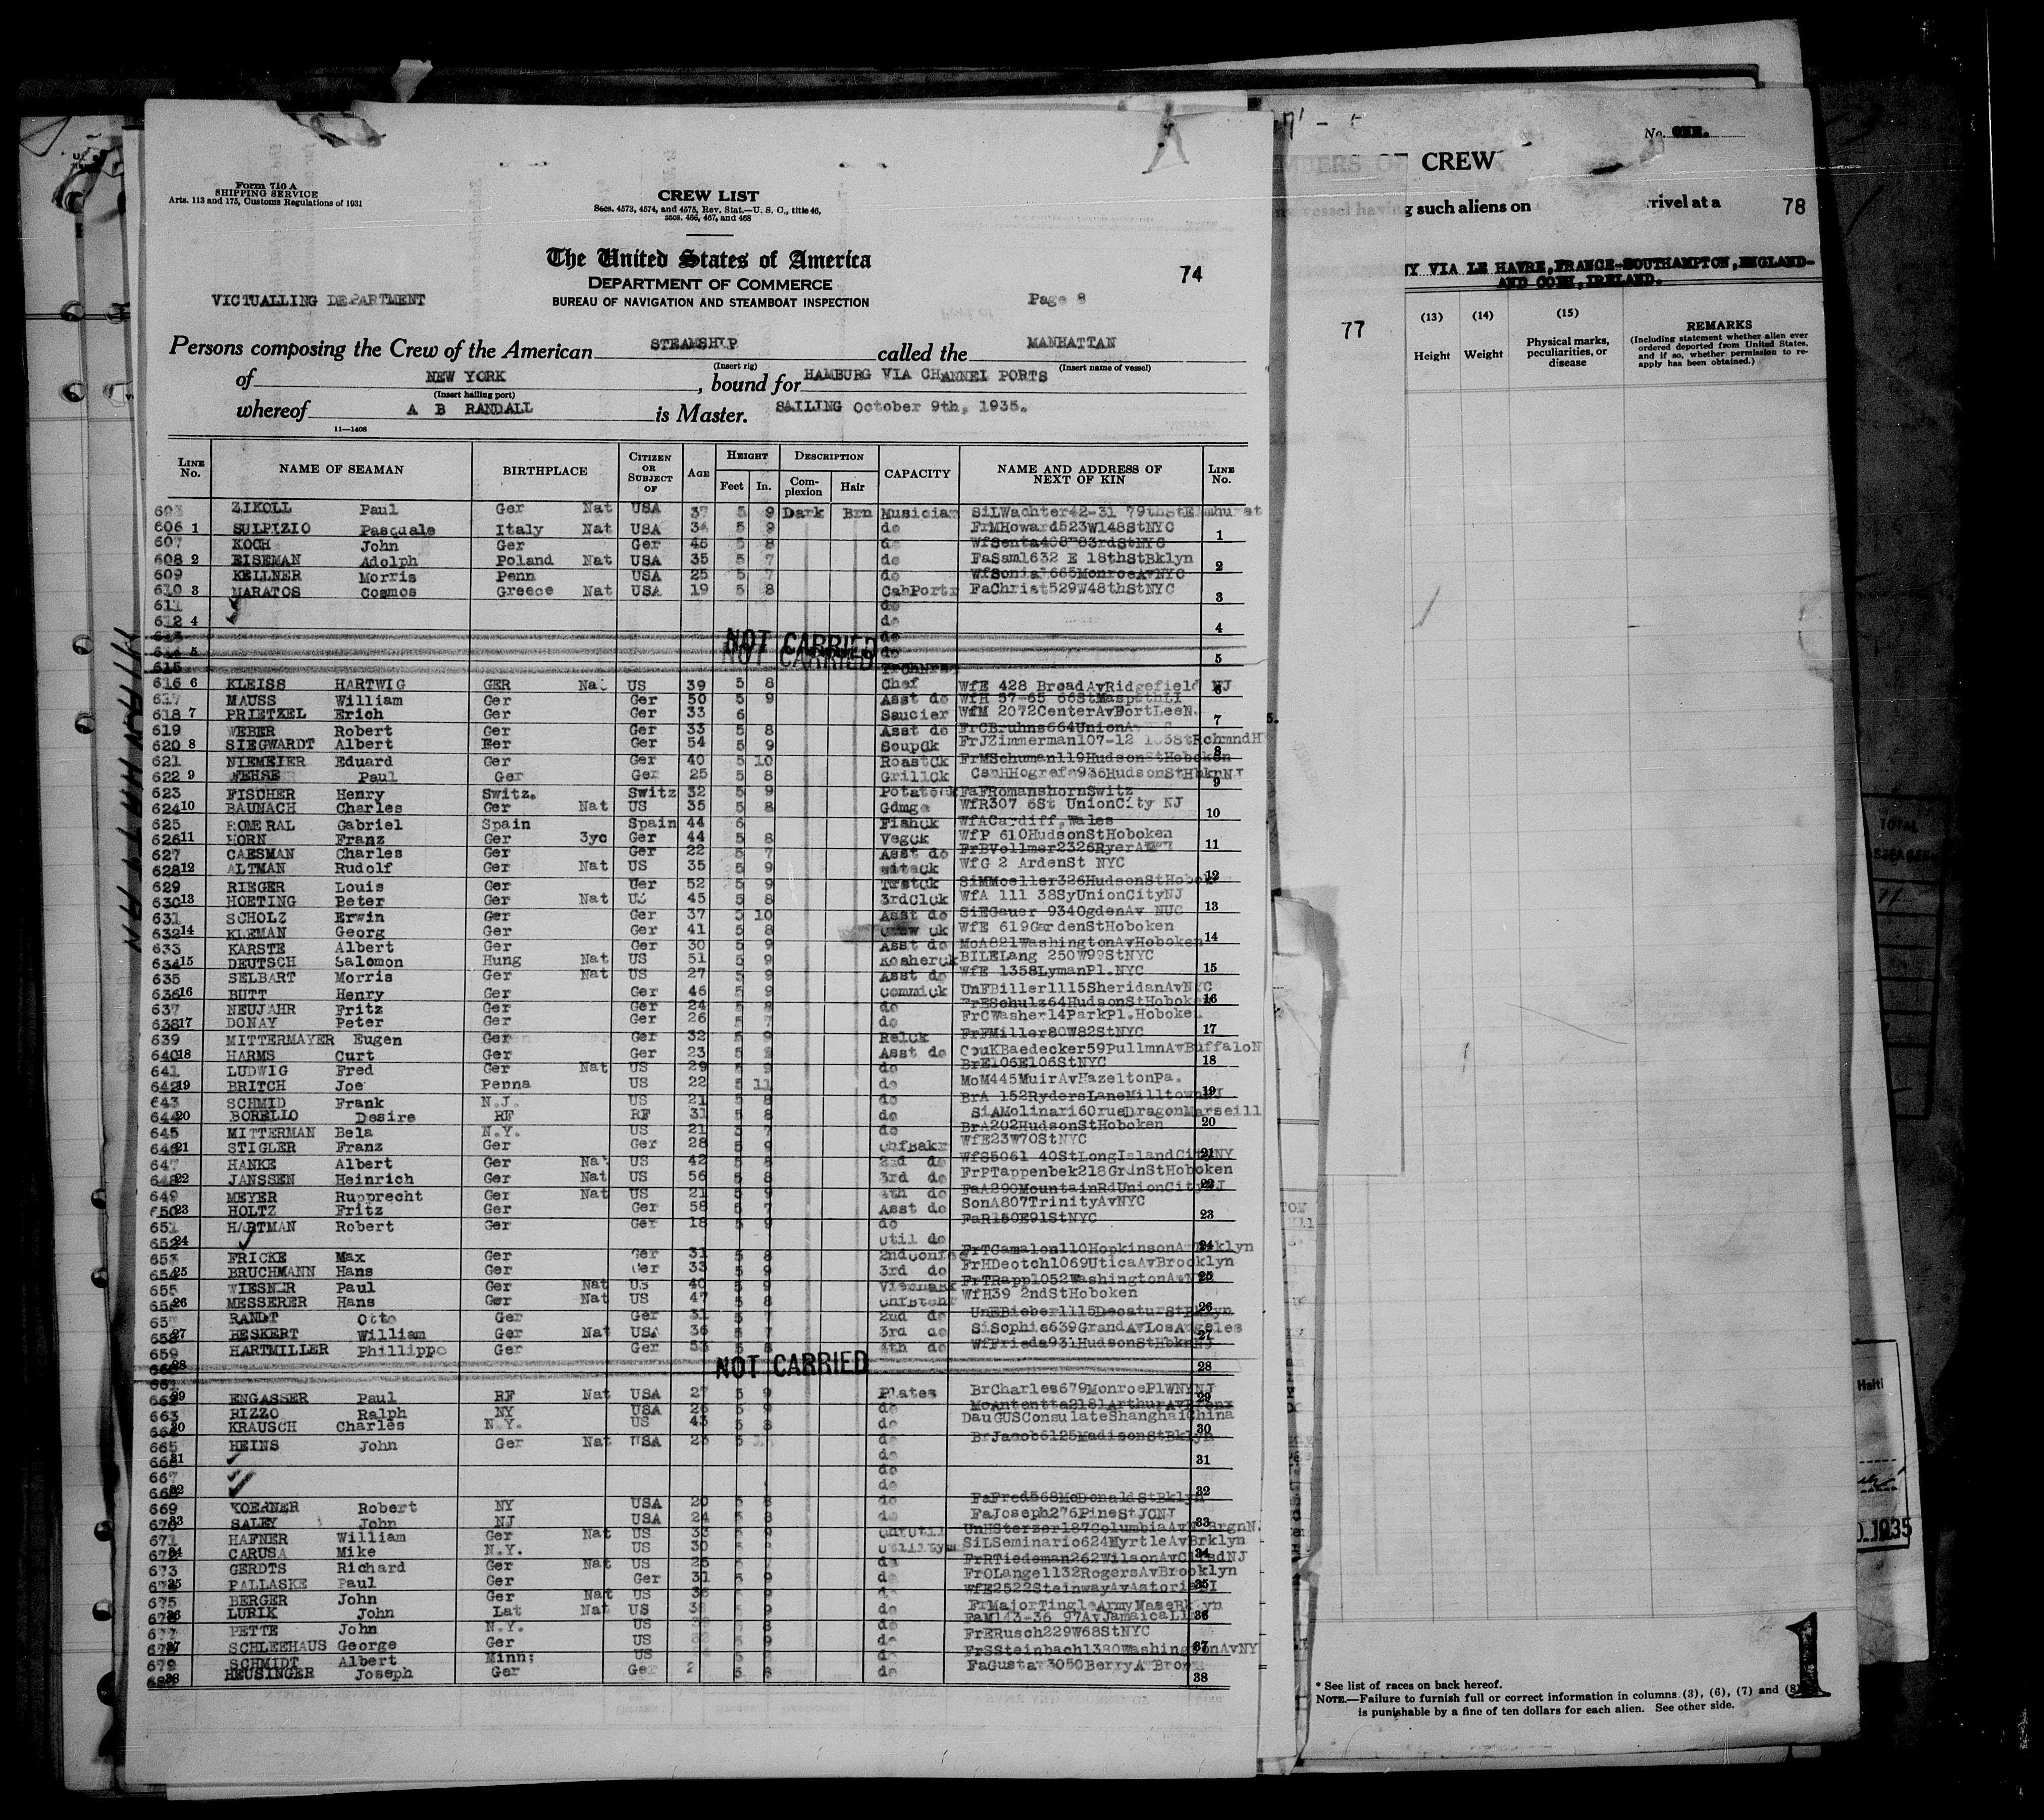 Form 710 A
SHIPPING SERVICE
Arts. 113 and 175, Customs Regulations of 1931
CREW LIST
Secs. 4573, 4574, and 4575, Rev. Stat.—U. S. C., title 46,
secs. 466, 467, and 468
The United States of America
DEPARTMENT OF COMMERCE
BUREAU OF NAVIGATION AND STEAMBOAT INSPECTION
74
VICTUALLING DEPARTMENT
Page 8
Persons composing the Crew of the American STEAMSHIP called the MANHATTAN
(Insert rig) (Insert name of vessel)
of NEW YORK, bound for HAMBURG VIA CHANNEL PORTS
(Insert hailing port)
whereof A B RANDALL is Master. SAILING October 9th, 1935.
11—1408
LINE No. NAME OF SEAMAN BIRTHPLACE CITIZEN OR SUBJECT OF AGE HEIGHT Feet In. DESCRIPTION Complexion Hair CAPACITY NAME AND ADDRESS OF NEXT OF KIN LINE No.
ZIKOLL Paul Ger Nat USA 37 5 9 Dark Brn Musician SiLWachter42-31 79thStElmhurst
606 1 SULPIZIO Pasquale Italy Nat USA 34 5 9 do FrMHoward523W148StNYC 1
607 KOCH John Ger Ger 46 5 8 do WfSenta408 83rdStNYC
608 2 EISEMAN Adolph Poland Nat USA 35 5 7 do FaSam1632 E 18thStBklyn 2
609 KELLNER Morris Penn USA 25 5 7 do WfSonia 665MonroeAvNYC
610 3 MARATOS Cosmos Greece Nat USA 19 5 8 CabPortr FaChrist529W48thStNYC 3
611 do
612 4 do 4
613 NOT CARRIED do
614 5 NOT CARRIED do 5
615
616 6 KLEISS HARTWIG GER Nat US 39 5 8 Chef WfE 428 BroadAvRidgefield NJ 6
617 MAUSS William Ger Ger 50 5 9 Asst do WfH 57-65 66StMaspethLI
618 7 PRIETZEL Erich Ger Ger 33 6 Saucier WfM 2072CenterAvFortLeeN. 7
619 WEBER Robert Ger Ger 33 5 8 Asst do FrCBruhns664UnionAv
620 8 SIEGWARDT Albert Eer Ger 54 5 9 SoupCk FrJZimmerman107-12 StRchmndH 8
621 NIEMEIER Eduard Ger Ger 40 5 10 RoastCk FrMSchuman119HudsonStHoboken
622 9 FEHSE Paul Ger Ger 25 5 8 GrillCk CsnHHogrefe936HudsonStHbknNJ 9
623 FISCHER Henry Switz. Switz 32 5 9 PotatoCk FaFRomanshornSwitz
624 10 BAUNACH Charles Ger Nat US 35 5 8 Gdmge WfR307 6St UnionCity NJ 10
625 ROMERAL Gabriel Spain Spain 44 6 Fishck WfACardiff,Wales
626 11 HORN Franz Ger 3yc Ger 44 5 8 Vegck WfP 610HudsonStHoboken 11
627 CAESMAN Charles Ger Ger 22 5 7 Asst do FrBVollmer2326RyerA
628 12 ALTMAN Rudolf Ger Nat US 35 5 9 WfG 2 ArdenSt NYC 12
629 RIEGER Louis Ger Ger 52 5 9 SiMMoeller326HudsonStHobok
630 13 HOETING Peter Ger Nat US 45 5 8 3rdClck WfA 111 38SyUnionCityNJ 13
631 SCHOLZ Erwin Ger Ger 37 5 10 Asst do SiEGauer 934OgdenAv NUC
632 14 KLEMAN Georg Ger Ger 41 5 8 WfE 619GardenStHoboken 14
633 KARSTE Albert Ger Ger 30 5 9 Asst do MoA821WashingtonAvHoboken
634 15 DEUTSCH Salomon Hung Nat US 51 5 9 Kosherck BILELang 250W99StNYC 15
635 SELBART Morris Ger Nat US 27 5 9 Asst do WfE 1358LymanPl.NYC
636 16 BUTT Henry Ger Ger 46 5 9 Commick UnFBiller1115SheridanAvNYC 16
637 NEUJAHR Fritz Ger Ger 24 5 8 do FrESchulz64HudsonStHoboken
638 17 DONAY Peter Ger Ger 26 5 7 do FrCWasher14ParkPl.Hoboken 17
639 MITTERMAYER Eugen Ger Ger 32 5 9 Relck FrFMiller80W82StNYC
640 18 HARMS Curt Ger Ger 23 5 Asst do CouKBaedecker59PullmnAvBuffaloN 18
641 LUDWIG Fred Ger Nat US 29 5 9 do BrE106E106StNYC
642 19 BRITCH Joe Penna US 22 5 11 do MoM445MuirAvHazeltonPa. 19
643 SCHMID Frank N.J. US 21 5 8 do BrA 152RydersLaneMilltownNJ
644 20 BORELLO Desire RF RF 31 5 8 do SiAMolinari60rueDragonMarseill 20
645 MITTERMAN Bela N.Y. US 21 5 7 do BrA202HudsonStHoboken
646 21 STIGLER Franz Ger Ger 28 5 9 ChfBakr WfE23W70StNYC 21
647 HANKE Albert Ger Nat US 42 5 8 2nd do WfS5061 40StLongIslandCityNY
648 22 JANSSEN Heinrich Ger Nat US 56 5 8 3rd do FrPTappenbek218GrdnStHoboken 22
649 MEYER Rupprecht Ger Nat US 21 5 9 4th do FaA290MountainRdUnionCityNJ
650 23 HOLTZ Fritz Ger Ger 58 5 7 Asst do SonA807TrinityAvNYC 23
651 HARTMAN Robert Ger Ger 18 5 9 do FaR150E91StNYC
652 24 Util do 24
653 FRICKE Max Ger Ger 31 5 8 FrTCamalon110HopkinsonAvBklyn
654 25 BRUCHMANN Hans Ger Ger 33 5 9 3rd do FrHDeotch1069UticaAvBrooklyn 25
655 WIESNER Paul Ger Nat US 40 5 9 FrTRapp1052WashingtonAvN
656 26 MESSERER Hans Ger Nat US 47 5 8 WfH39 2ndStHoboken 26
657 RANDT Otto Ger Ger 31 5 7 2nd do UnEBieber1115DecaturStBklyn
658 27 BESKERT William Ger Nat USA 36 5 7 3rd do SiSophie639GrandAvLosAngeles 27
659 HARTMILLER Phillippo Ger Ger 53 5 8 4th do WfFrieda931HudsonStHbknNJ
660 28 NOT CARRIED 28
661
662 29 ENGASSER Paul RF Nat USA 27 5 9 Plates BrCharles679MonroePlWNYNJ 29
663 RIZZO Ralph NY USA 26 5 9 do MoAntentta2181ArthurAvBronx
664 30 KRAUSCH Charles N.Y. US 43 5 8 do DauGUSConsulateShanghaiChina 30
665 HEINS John Ger Nat USA 23 5 do BrJacob6125MadisonStBklyn
666 31 do 31
667 do
668 32 do 32
669 KOERNER Robert NY USA 20 5 8 do FaFred568McDonaldStBklyn
670 33 SALEY John NJ USA 24 5 8 do FaJoseph276PineStJCNJ 33
671 HAFNER William Ger Nat US 33 5 9 ChfUtil UnHSterzer187ColumbiaAvN BrgnN.
672 34 CARUSA Mike N.Y. US 30 5 SiLSeminario624MyrtleAvBrklyn 34
673 GERDTS Richard Ger Nat US 25 5 7 do FrRTiedeman262WilsonAvC NJ
674 35 PALLASKE Paul Ger Ger 31 5 9 do FrOLange1132RogersAvBrooklyn 35
675 BERGER John Ger Nat US 5 9 do WfE2522SteinwayAvAstoriaLI
676 36 LURIK John Lat Nat US 5 9 do FrMajorTingleArmyMaseBklyn 36
677 PETTE John N.Y. US 5 8 do FaM143-36 97AvJamaicaLI
678 37 SCHLEEHAUS George Ger US 5 9 do FrERusch229W68StNYC 37
679 SCHMIDT Albert Minn; US 5 do FrSSteinbach1380WashingtonAvNY
680 38 HEUSINGER Joseph Ger Ger 2 5 8 do FaGustav3050BerryAvBronx 38
MANHATTAN
No. ONE.
MBERS OF CREW
vessel having such aliens on
rrival at a
78
Y VIA LE HAVRE,FRANCE-SOUTHAMPTON,ENGLAND-
AND COBH,IRELAND.
77
(13) Height
(14) Weight
(15) Physical marks, peculiarities, or disease
REMARKS
(Including statement whether alien ever ordered deported from United States, and if so, whether permission to reapply has been obtained.)
TOTAL
Haiti
1935
1
* See list of races on back hereof.
NOTE.—Failure to furnish full or correct information in columns (3), (6), (7) and (8)
is punishable by a fine of ten dollars for each alien. See other side.